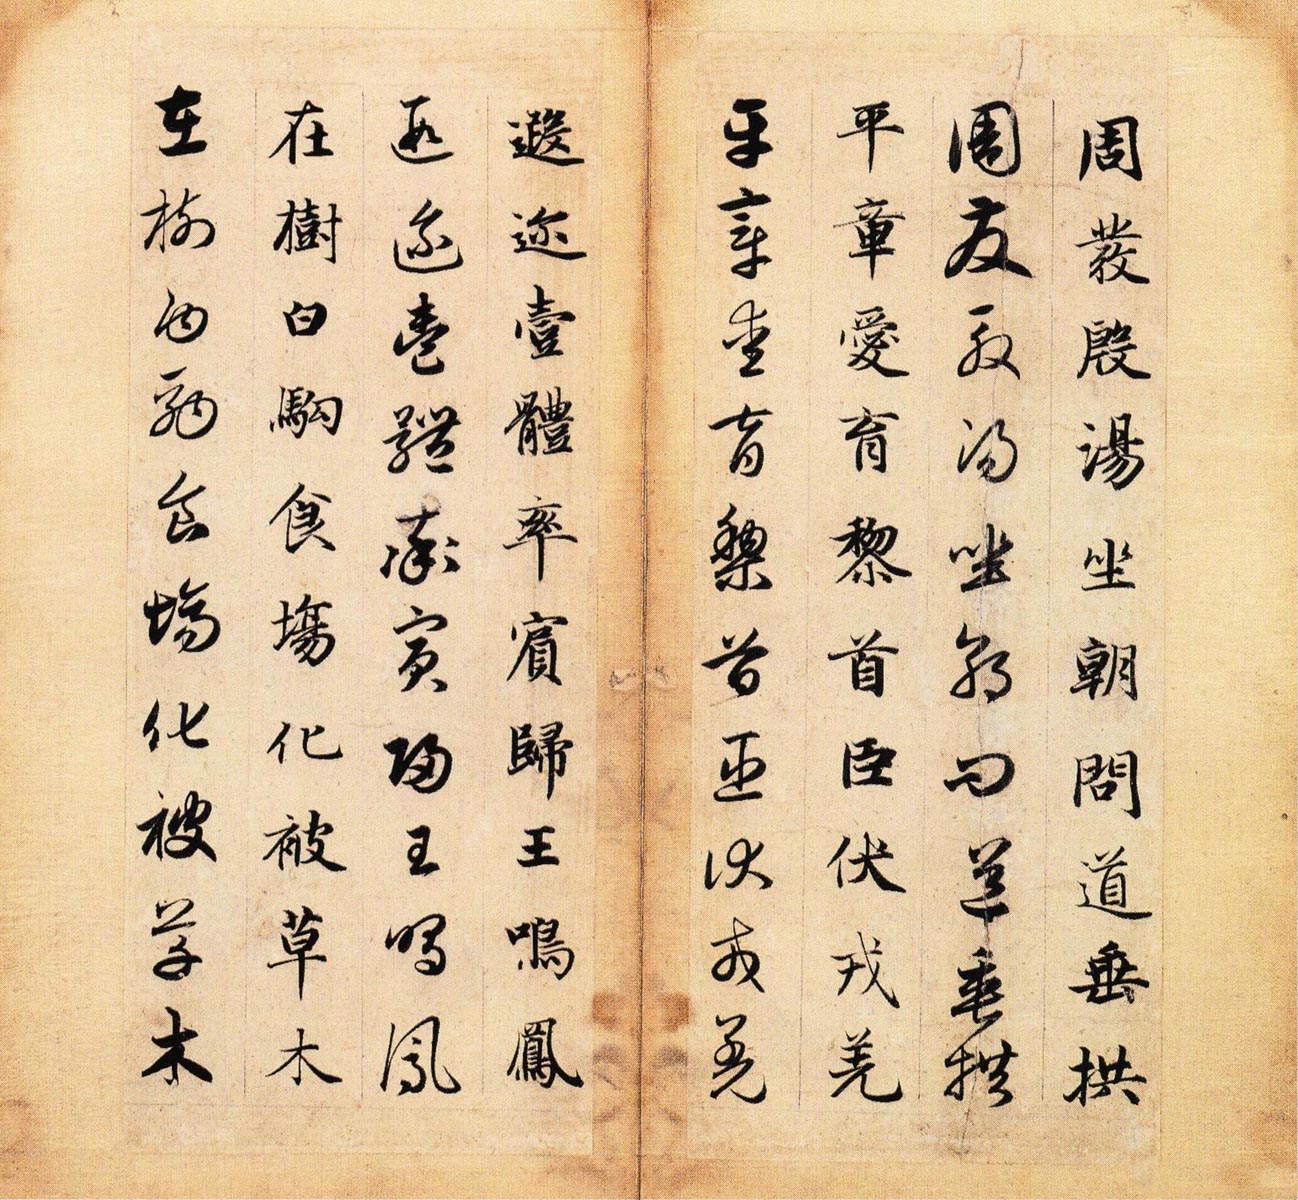 周發殷湯坐朝問道垂拱
周發殷湯坐朝問道垂拱
平章愛育黎首臣伏戎羌
平章愛育黎首臣伏戎羌
遐迩壹體率賓歸王鳴鳳
遐迩壹體率賓歸王鳴鳳
在樹白駒食場化被草木
在樹白駒食場化被草木